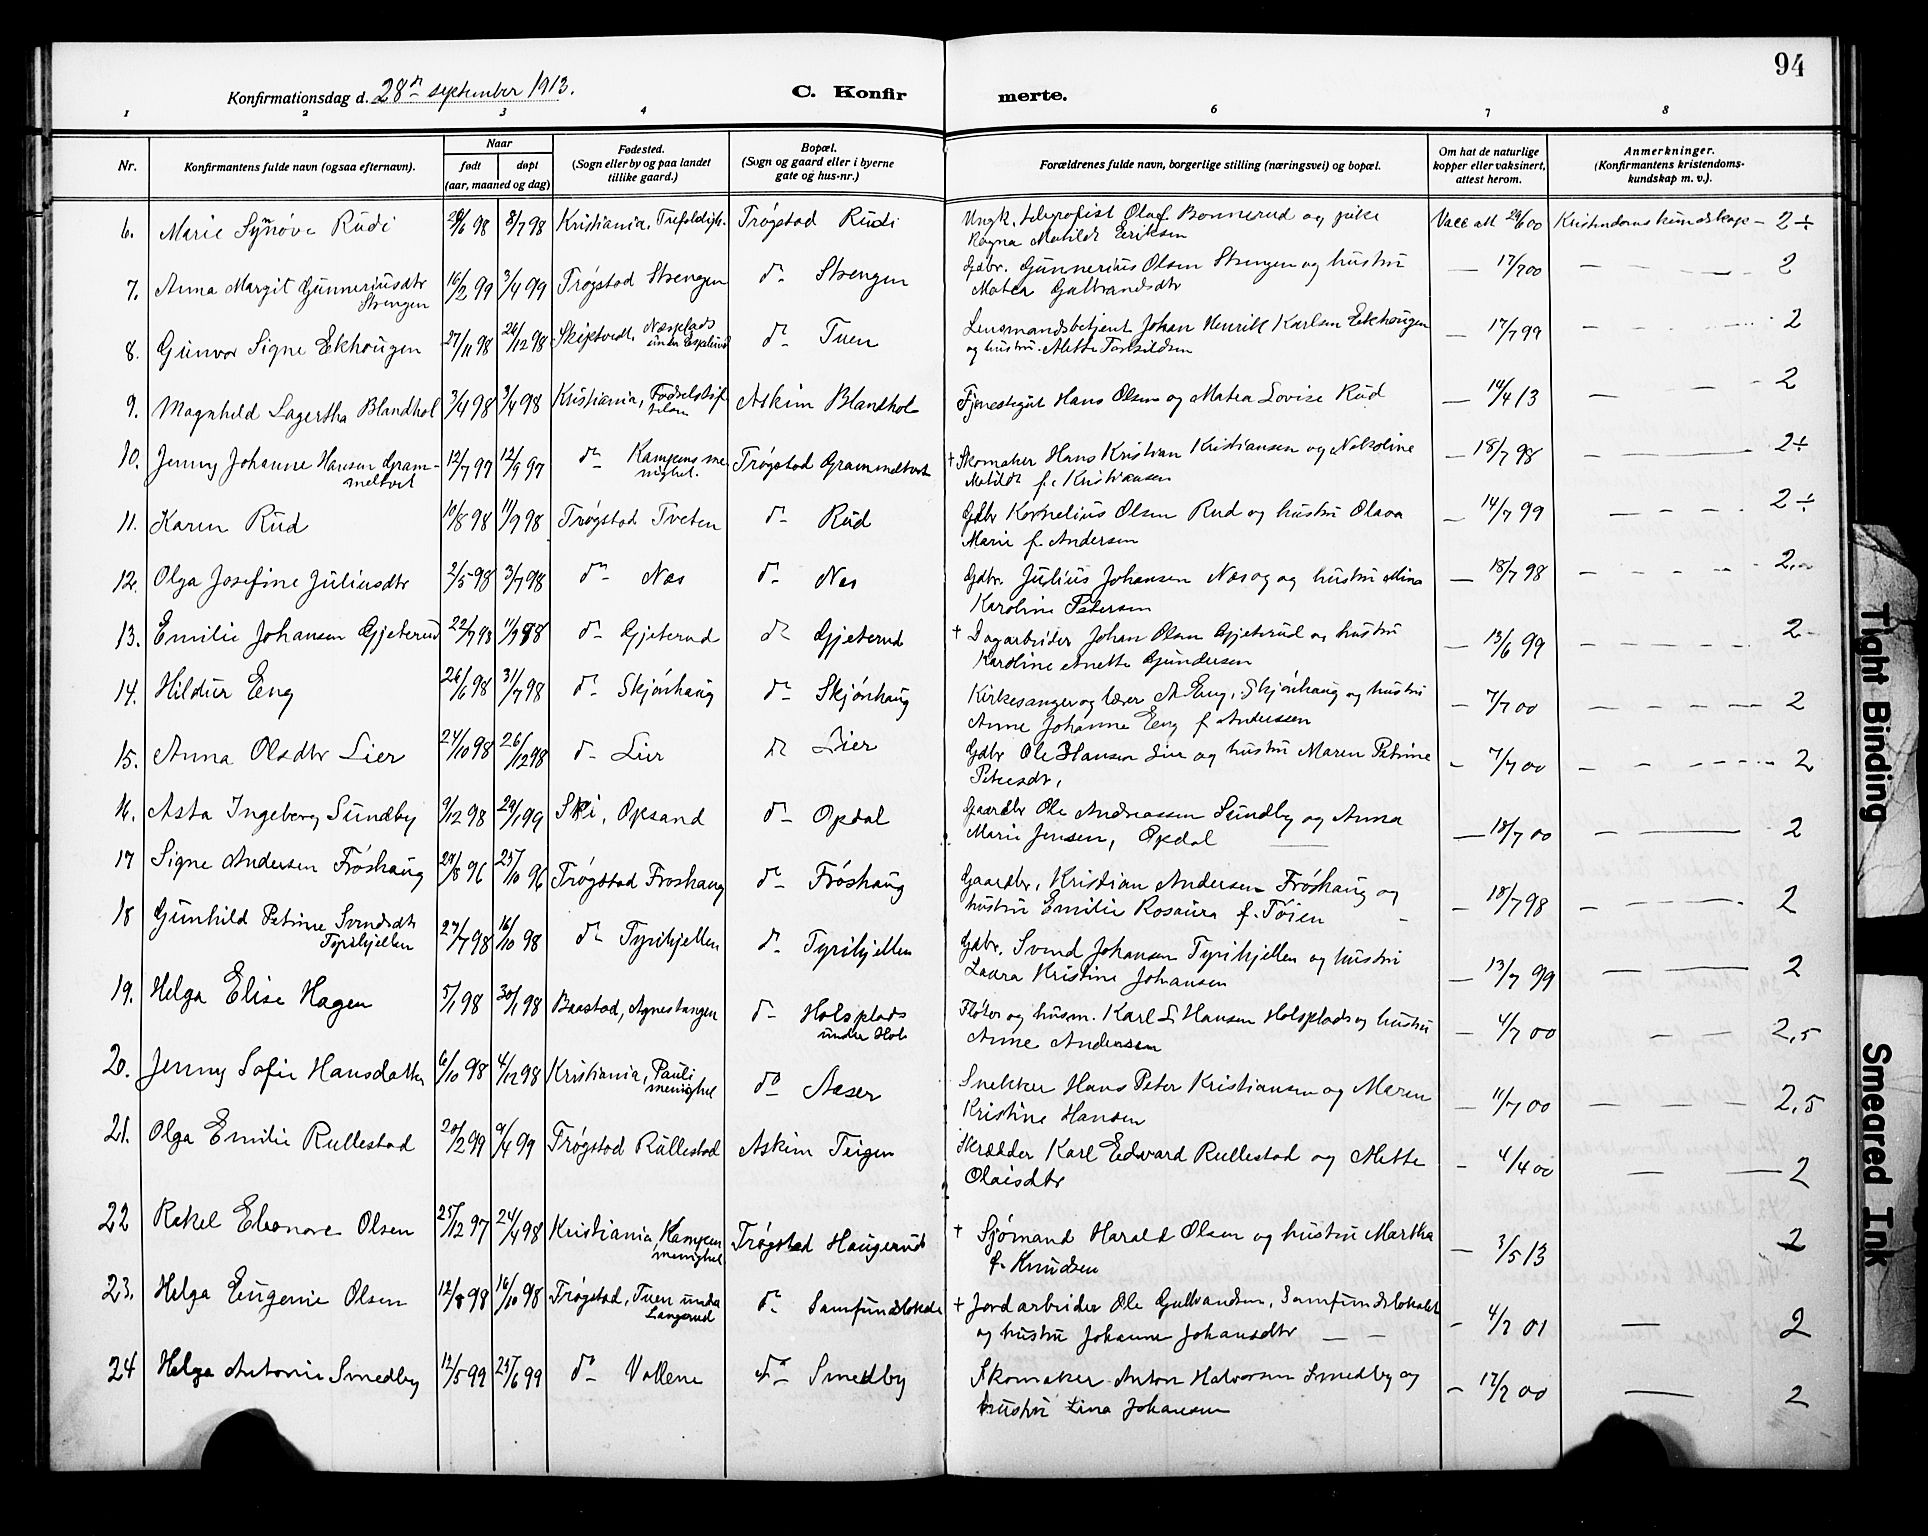 94
Konfirmationsdag d. 28de september 1913.
C. Konfirmerte.
1 2 3 4 6 7 8
Nr.
Konfirmantens fulde navn (ogsaa efternavn).
Naar
født
døpt
(aar, maaned og dag)
Fødested.
(Sogn eller by og paa landet
tillike gaard.)
Bopæl.
(Sogn og gaard eller i byerne
gate og hus-nr.)
Forældrenes fulde navn, borgerlige stilling (næringsvei) og bopæl.
Om hat de naturlige
kopper eller vaksinert,
attest herom.
Anmerkninger.
(Konfirmantens kristendoms-
kundskap m. v.).
6. Marie Synøve Rudi 8/7 98 Kristiania, Trefoldigh. Trøgstad Rudi Ungk. telegrafist Olaf Bonnerud og pike Vacc att Kristendomskundskap - 2÷
Ragna Matilde Eriksen
7. Anna Margit Gunneriusdtr 16/2 99 3/4 99 Trøgstad Strengen do Strengen Gdbr. Gunnerius Olsen Strengen og hustru — 17/7 00 — 2
Strengen Matea Gulbrandsdtr
8. Gunvor Signe Ekhougen 27/11 98 26/12 98 Skiptvedt, Næsplads do Tuen Lensmandsbetjent Johan Henrik Karlsen Ekhougen — 17/7 99 — 2
og hustru Mette
9. Magnhild Lagertha Blandhol 3/4 98 3/4 98 Kristiania, Askim Blandhol Tjenestegut Hans Olsen og Matea Lovise Rud — 14/4 13 — 2
10. Jenny Johanne Hansen Gram- 12/7 97 12/9 97 do Kampens me- Trøgstad Grammeltvet † Skomaker Hans Kristian Kristiansen og Nikoline — 18/7 98 — 2÷
meltvet nighet. Matilde f. Kristiansen
11. Karen Rud 10/8 98 11/9 98 Trøgstad Tveten do Rud Gdbr Kornelius Olsen Rud og hustru Olava — 14/7 99 — 2÷
Marie f. Andersen
12. Olga Josefine Juliusdtr 2/5 98 3/7 98 do Næs do Næs Gdbr. Julius Johansen Næs og hustru Mina — 18/7 98 — 2
Karoline Petersen
13. Emilie Johansen Gjeterud 22/7 98 11/9 98 do Gjeterud do Gjeterud † Dagarbeider Johan Olsen Gjeterud og hustru — 13/6 99 — 2
Karoline Anette Gundersen
14. Hildur Eng 26/6 98 31/7 98 do Skjønhaug do Skjønhaug Kirkesanger og lærer A Eng, Skjønhaug og hustru — 7/7 00 — 2
Anne Johanne Eng f Anderssen
15. Anna Olsdtr Lier 24/10 98 26/12 98 do Lier do Lier Gdbr Ole Hansen Lier og hustru Maren Petrine — 7/7 00 — 2
Petersdtr,
16. Asta Ingeborg Sundby 9/12 98 29/1 99 Ski, Opsand do Opdal Gaardbr Ole Andreassen Sundby og Anna — 18/7 00 — 2
Marie Jensen, Opdal
17 Signe Andersen Frøshaug 29/8 96 25/10 96 Trøgstad Froshaug do Frøshaug Gaardbr. Kristian Andersen Frøshaug og — 18/7 98 — 2
hustru Emilie Rosaura f. Tøien
18 Gunhild Petrine Svendsdtr 27/7 98 16/10 98 do Tyrihjellen do Tyrihjellen Gdbr. Svend Johansen Tyrihjellen og hustru — 13/7 99 — 2
Tyrihjellen Laura Kristine Johansen
19. Helga Elise Hagen 5/1 98 30/1 98 Baastad, Agnestangen do Holsplads Fløter og husm. Karl S Hansen Holsplads og hustru — 4/7 00 — 2,5
under Hol Anne Andersen
20. Jenny Sofie Hansdatter 6/10 98 4/12 98 Kristiania, Pauli do Aaser Snekker Hans Peter Kristiansen og Maren — 11/7 00 — 2,5
menighet Kristine Hansen
21. Olga Emilie Rullestad 20/2 99 9/4 99 Trøgstad Rullestad Askim Teigen Skrædder Karl Edvard Rullestad og Mette — 4/4 00 — 2
Olaisdtr
22 Rakel Eleonore Olsen 25/12 97 24/4 98 Kristiania, Kampen Trøgstad Haugerud † Sjømand Harald Olsen og hustru Martha — 3/5 13 2
menighet f. Knudsen
23. Helga Eugenie Olsen 12/8 98 16/10 98 Trøgstad, Tuen under do Samfundslokale † Jordarbeider Ole Gulbrandsen, Samfundslokalet — 4/7 01 — 2
Langerud og hustru Johanne Johansdtr
24 Helga Antonie Smedby 12/5 99 25/6 99 do Vollene do Smedby Skomaker Anton Halvorsen Smedby og — 17/7 00 — 2
hustru Lina Johansen
Tight Binding
Smeared Ink